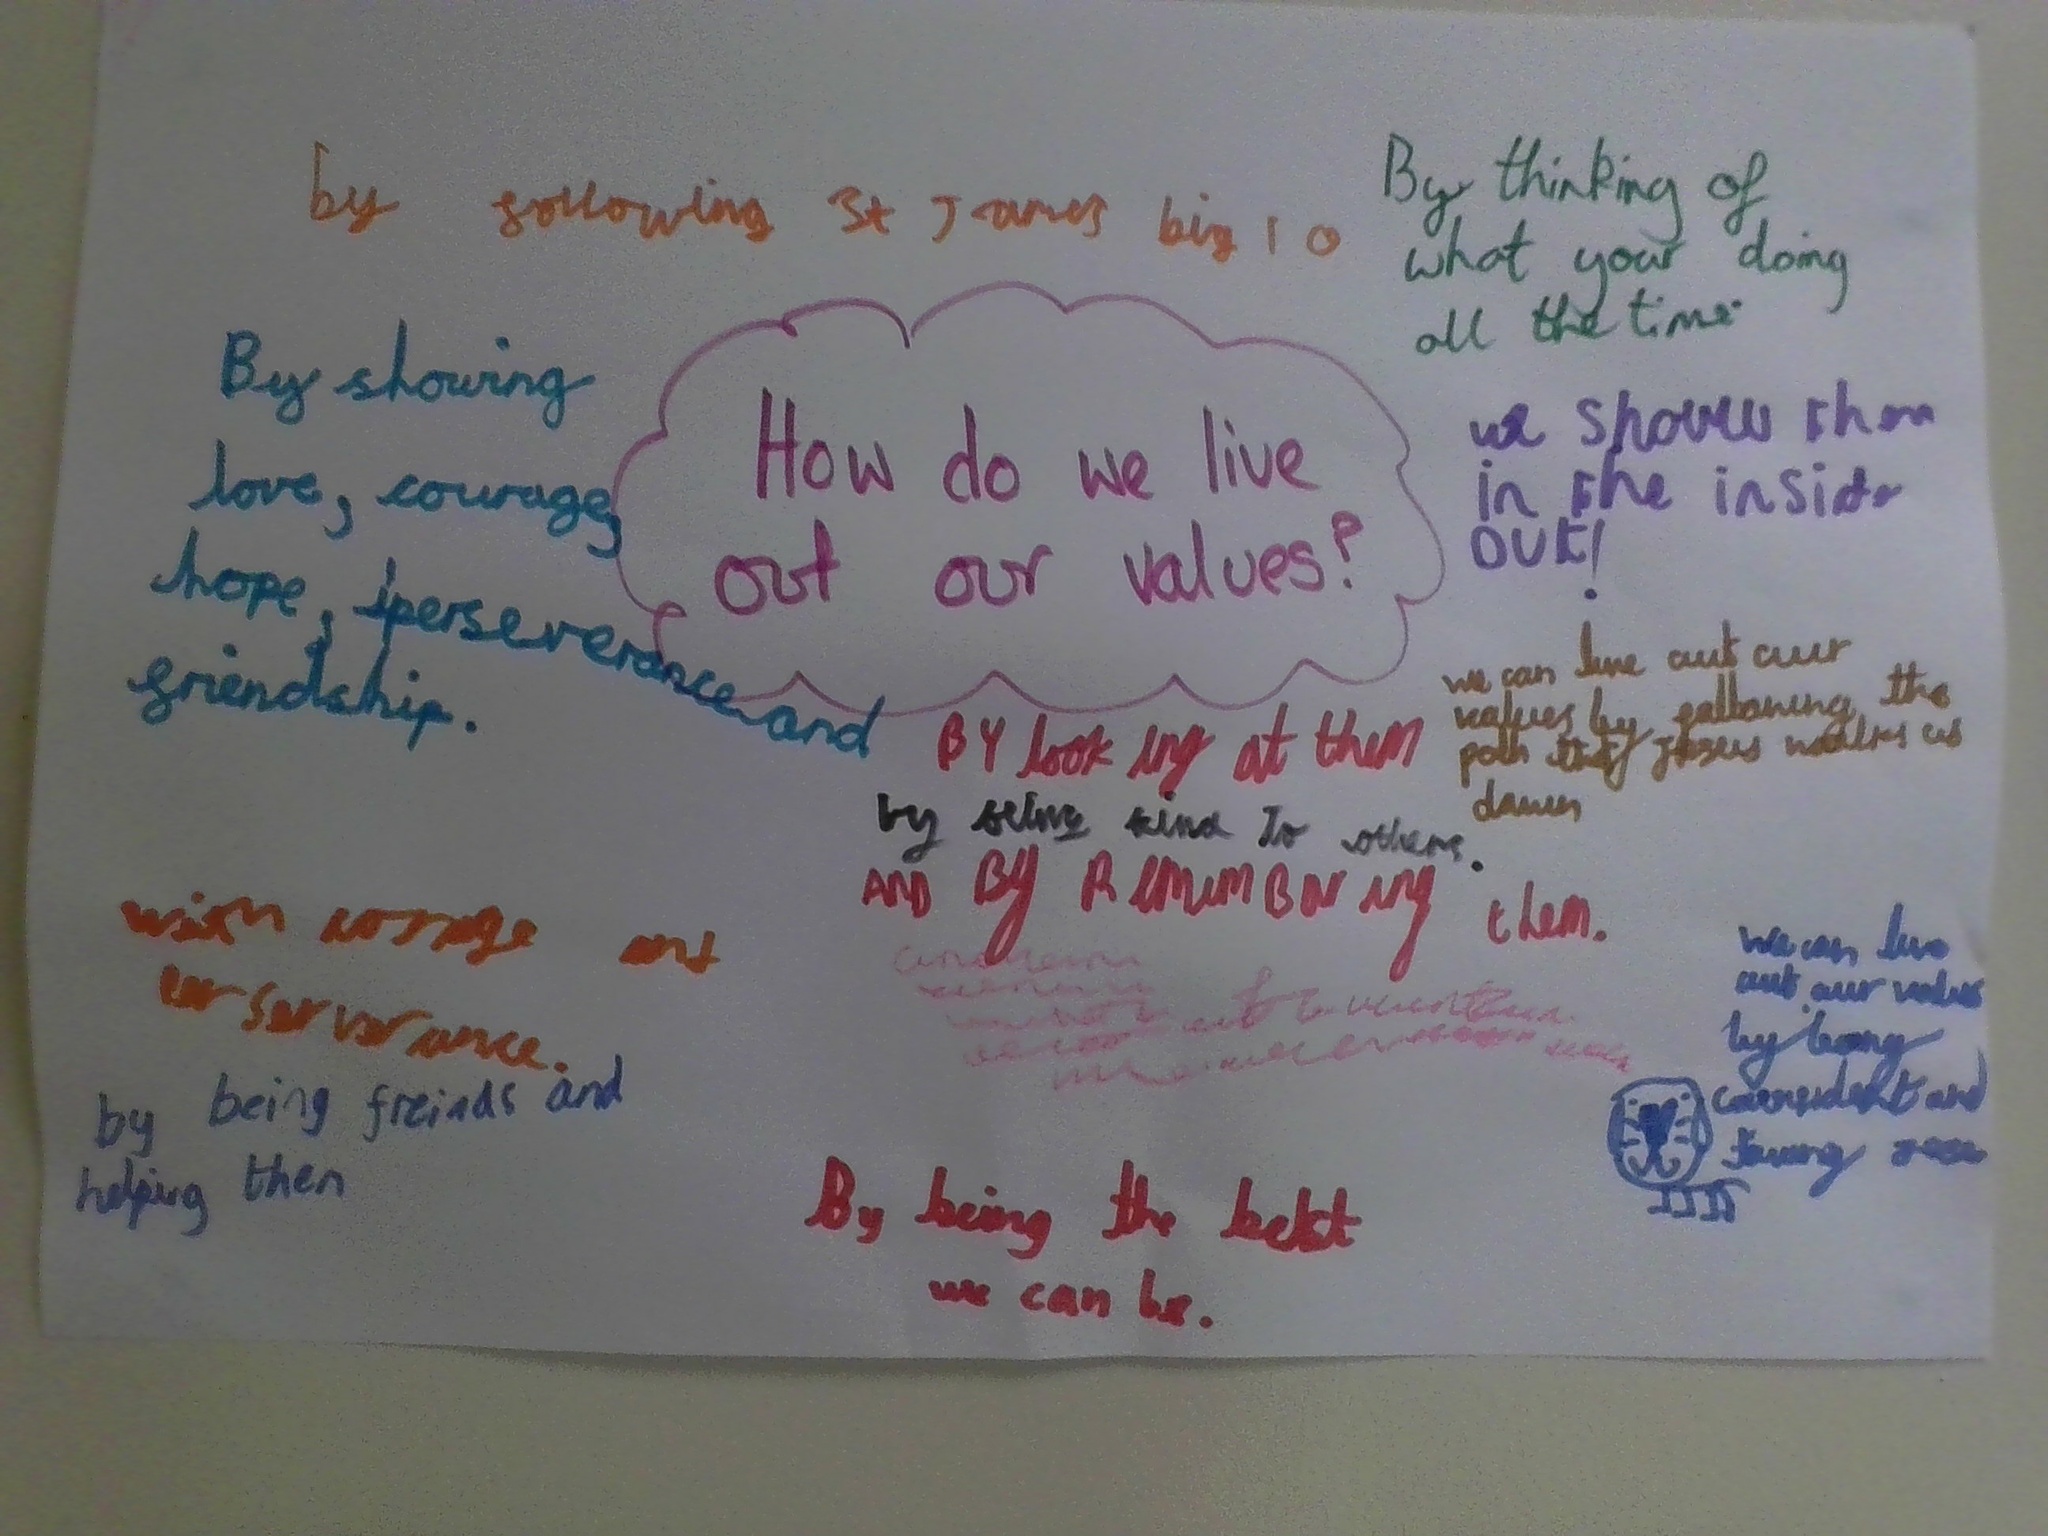 by following St James big 10
By thinking of
what your doing
all the time.
By showing
love, courage,
hope, perseverance and
friendship.
How do we live
out our values?
we shows them
in the inside
OUT!
we can live out our
values by following the
path that Jesus walks us
down
BY looking at them
by being kind to others.
AND BY REMEMBARing them.
with corrage and
perserverance.
by being freinds and
helping then
we can live
out our values
by being
confident and
By being the best
we can be.